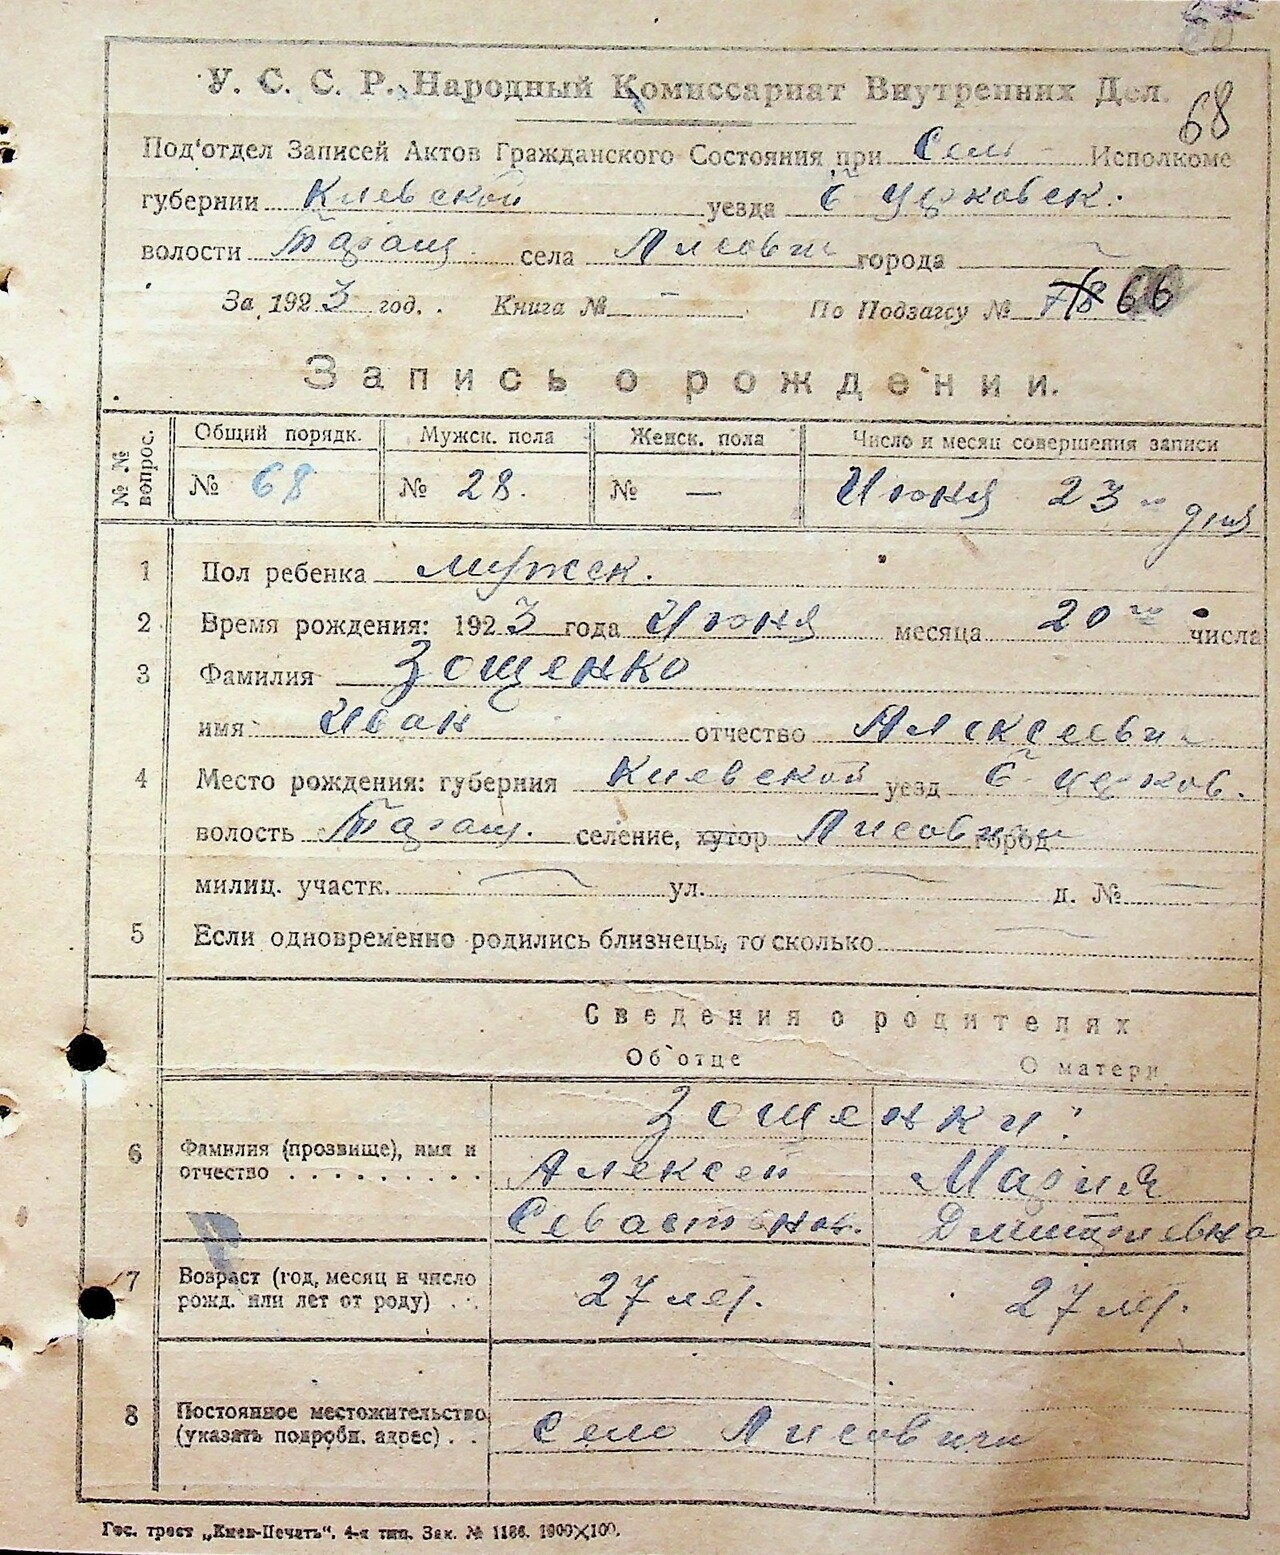 68
У. С. С. Р. Народный Комиссариат Внутренних Дел.
Под'отдел Записей Актов Гражданского Состояния при Сель- Исполкоме
губернии Киевской уезда Б Церковск.
волости Таращ. села Лисович города —
За 1923 год. Книга № — По Подзагсу № 66
Запись о рождении.
№№ вопрос. Общий порядк. Мужск. пола Женск. пола Число и месяц совершения записи
№ 68 № 28. № — Июня 23 го дня
1 Пол ребенка мужск.
2 Время рождения: 1923 года Июня месяца 20 го числа
3 Фамилия Зощенко
имя Иван отчество Алексеевич
4 Место рождения: губерния Киевской уезд Б-церков.
волость Таращ. селение, хутор Лисовичи город
милиц. участк. — ул. — д. № —
5 Если одновременно родились близнецы, то сколько —
Сведения о родителях
Об'отце О матери
Зощенки:
6 Фамилия (прозвище), имя и Алексей Мария
отчество . . . . . . . . . Севастьянов. Дмитриевна
7 Возраст (год, месяц и число 27 лет. 27 лет.
рожд. или лет от роду) . . .
8 Постоянное местожительство
(указать подробн. адрес) . . Село Лисовичи
Гос. трест „Киев-Печать“. 4-я тип. Зак. № 1186. 1000×100.